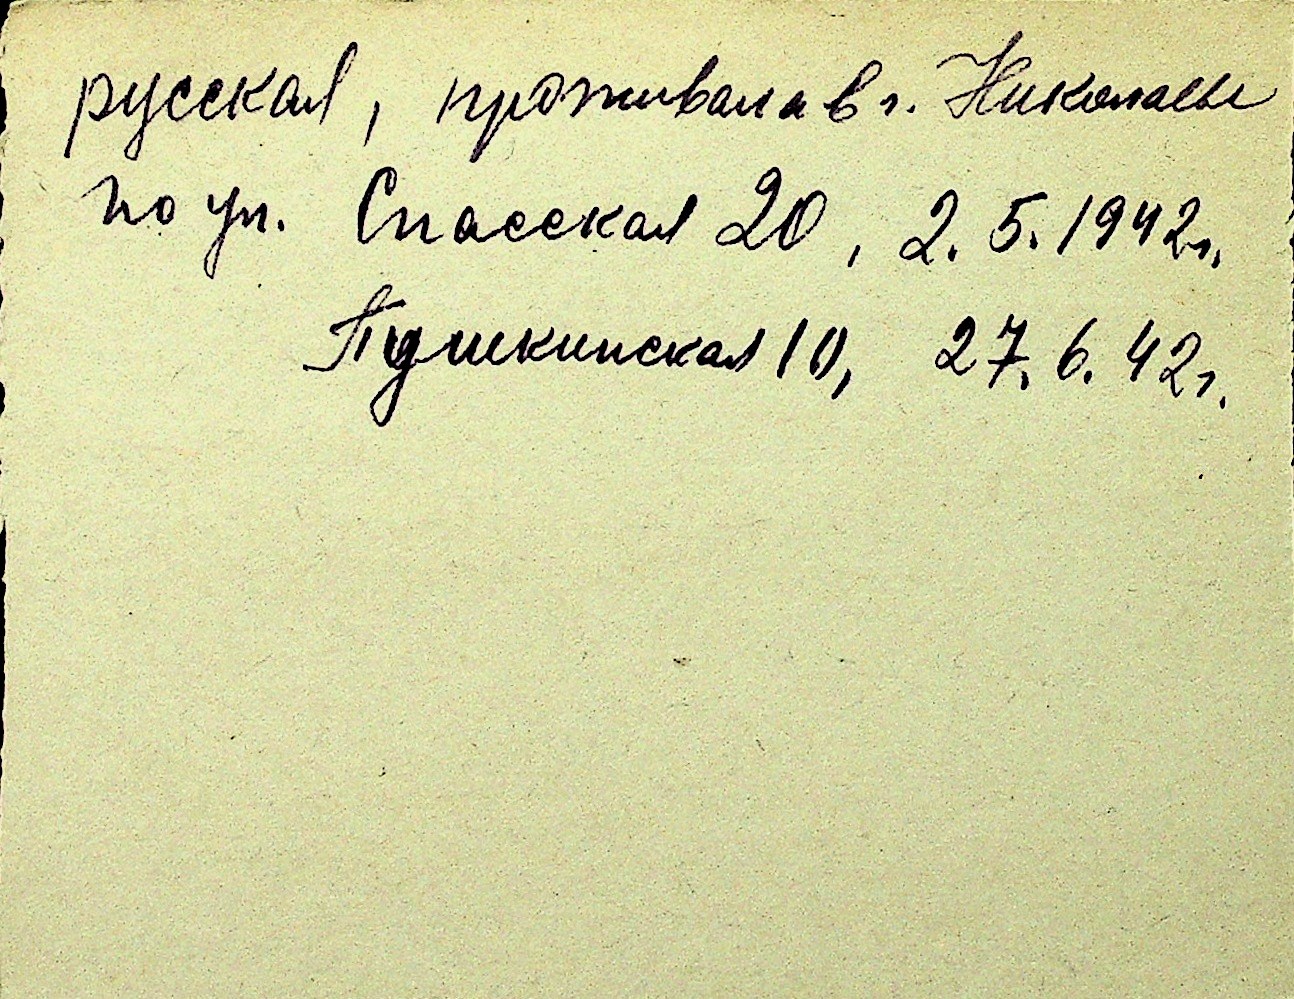 русская, проживала в г. Николаеве
по ул. Спасская 20, 2.5.1942г.
Пушкинская 10, 27.6.42г.